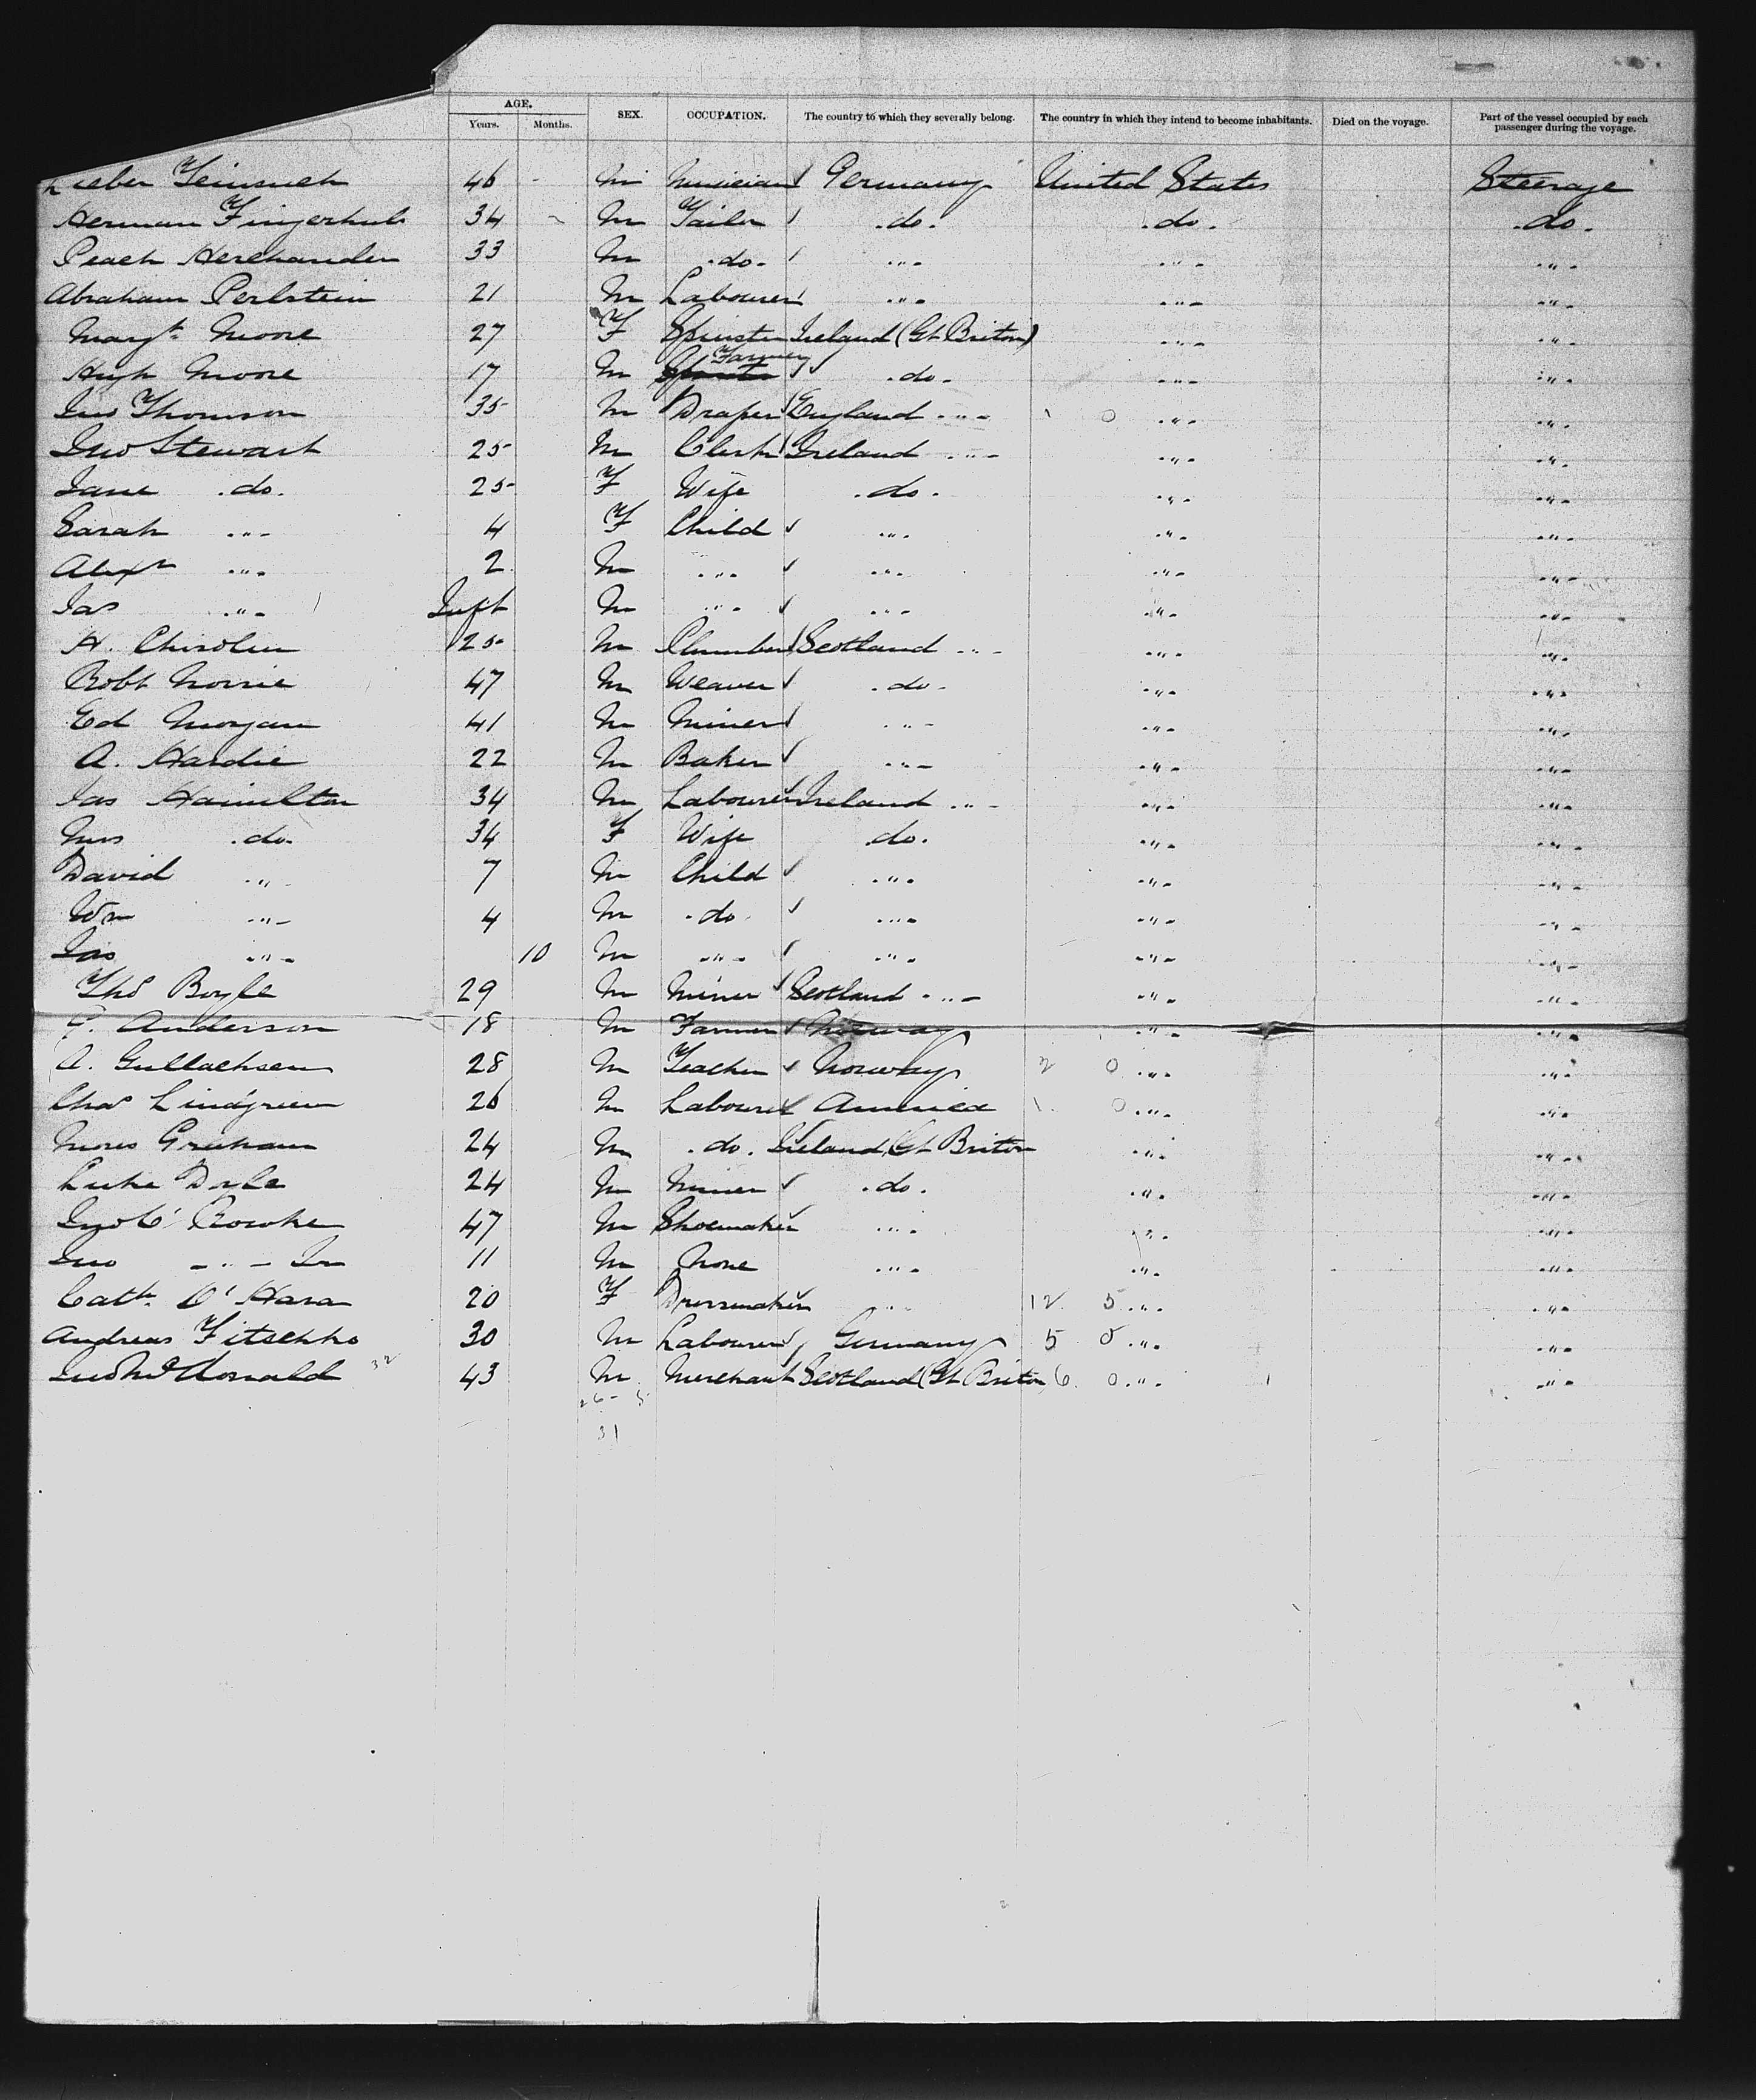 AGE.
Years. Months. SEX. OCCUPATION. The country to which they severally belong. The country in which they intend to become inhabitants. Died on the voyage. Part of the vessel occupied by each passenger during the voyage.
Lieber 46 - M Musician Germany United States Steerage
Herman Fingerhut 34 - M Tailor .do. .do. .do.
33 M .do. ".." ".." ".."
Abraham Perlstein 21 M Labourer ".." ".." ".."
Margt. Moore 27 F Spinster Ireland (Gt. Briton) ".." ".."
Hugh Moore 17 M Farmer .do. ".." ".."
Jno Thomson 35 M Draper England ".." 0 ".." ".."
Jno Stewart 25 M Clerk Ireland ".." ".." ".."
Jane .do. 25 F Wife .do. ".." ".."
Sarah ".." 4 F Child ".." ".." ".."
Alexr ".." 2 M ".." ".." ".." ".."
Jas ".." Inft M ".." ".." ".." ".."
H. 25 M Plumber Scotland ".." ".." ".."
Robt Norrie 47 M Weaver .do. ".." ".."
Ed Morgan 41 M Miner ".." ".." ".."
A. Hardie 22 M Baker ".." ".." ".."
Jas Hamilton 34 M Labourer Ireland ".." ".." ".."
Mrs .do. 34 F Wife .do. ".." ".."
David ".." 7 M Child ".." ".." ".."
Wm ".." 4 M .do. ".." ".." ".."
Jas ".." 10 M ".." ".." ".." ".."
Thos Boyle 29 M Miner Scotland ".." ".." ".."
Anderson 18 M Farmer Norway ".." ".."
A. Gullachsen 28 M Teacher Norway 2 0 ".." ".."
Chas Lindgreen 26 M Labourer America 1. 0 ".." ".."
Graham 24 M .do. Ireland (Gt Briton ".." ".."
Luke 24 M Miner .do. ".." ".."
Jno O' Rourke 47 M Shoemaker ".." ".." ".."
Jno ".." Jr 11 M None ".." ".." ".."
Cath. O'Hara 20 F Dressmaker ".." 12 5 ".." ".."
Andreas Fitschko 30 M Labourer Germany 5 0 ".." ".."
Jno McDonald 32 43 M Merchant Scotland (Gt Briton 6 0 ".." ".."
26 - 5
31